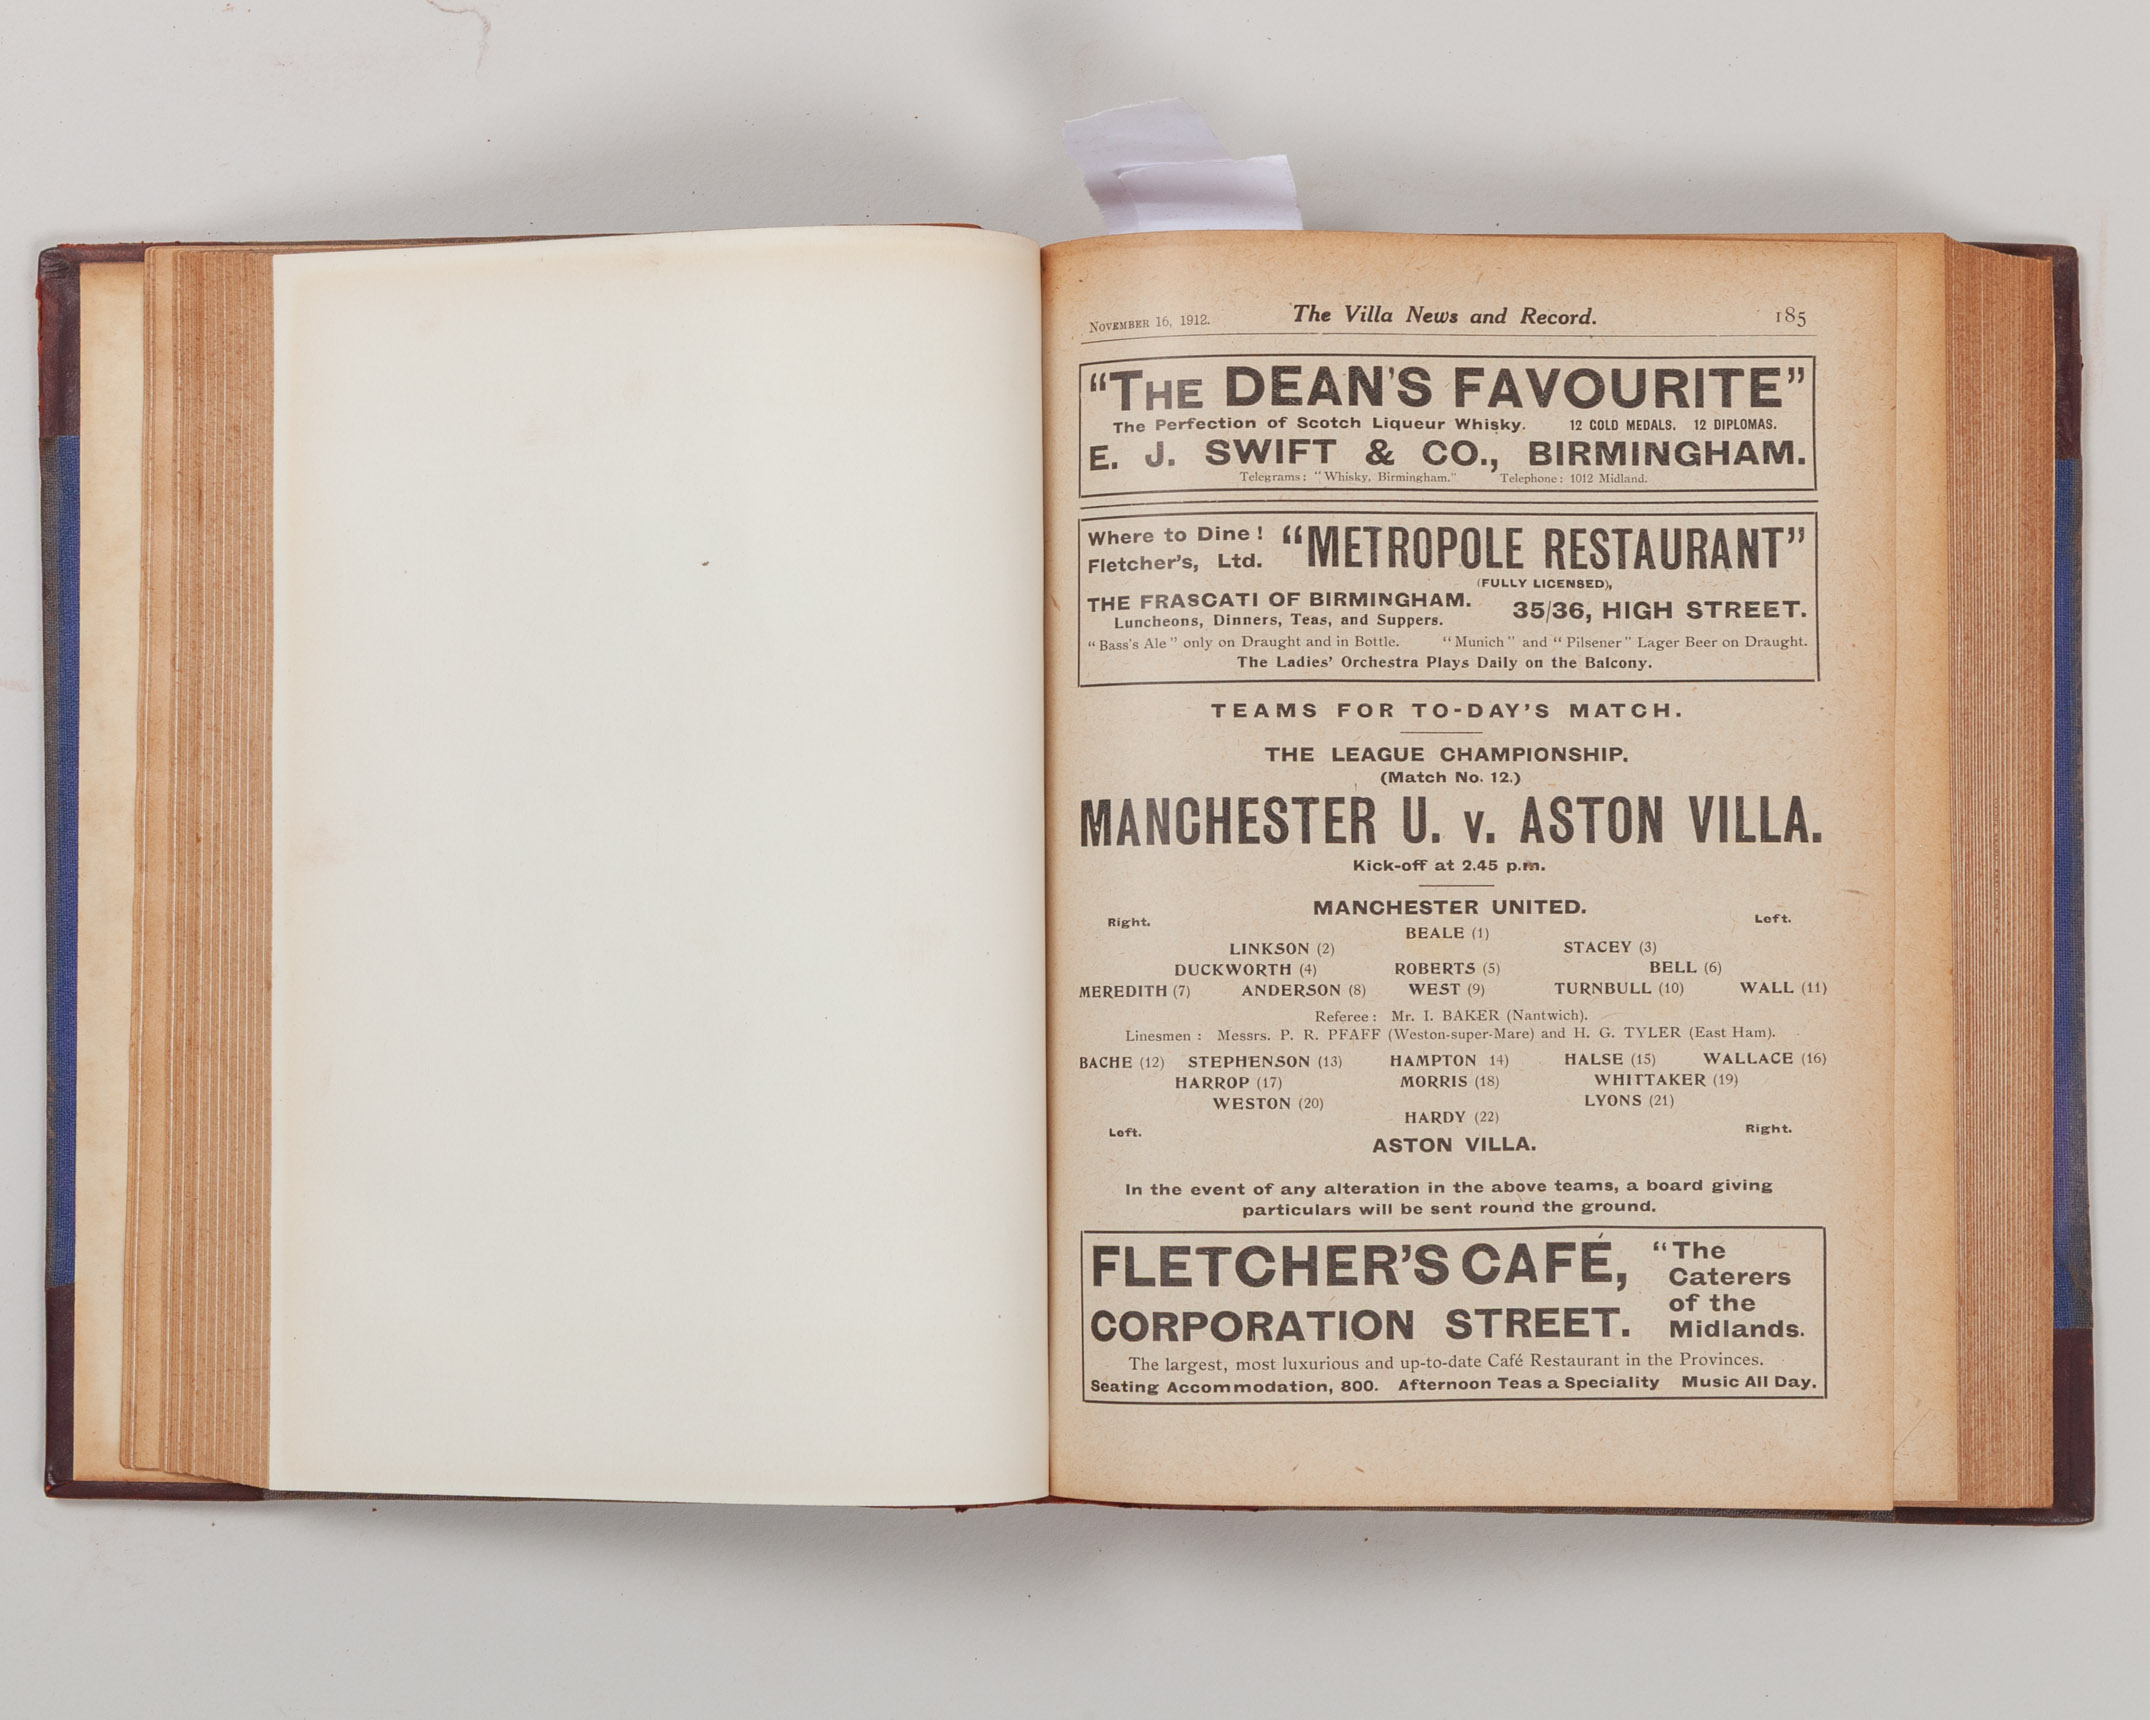 NOVEMBER 16, 1912. The Villa News and Record. 185
“THE DEAN'S FAVOURITE”
The Perfection of Scotch Liqueur Whisky. 12 GOLD MEDALS. 12 DIPLOMAS.
E. J. SWIFT & CO., BIRMINGHAM.
Telegrams: “Whisky, Birmingham.” Telephone: 1012 Midland.
Where to Dine! “METROPOLE RESTAURANT”
Fletcher's, Ltd.
(FULLY LICENSED),
THE FRASCATI OF BIRMINGHAM. 35/36, HIGH STREET.
Luncheons, Dinners, Teas, and Suppers.
“Bass's Ale” only on Draught and in Bottle. “Munich” and “Pilsener” Lager Beer on Draught.
The Ladies' Orchestra Plays Daily on the Balcony.
TEAMS FOR TO-DAY'S MATCH.
THE LEAGUE CHAMPIONSHIP.
(Match No. 12.)
MANCHESTER U. v. ASTON VILLA.
Kick-off at 2.45 p.m.
MANCHESTER UNITED.
Right. Left.
BEALE (1)
LINKSON (2) STACEY (3)
DUCKWORTH (4) ROBERTS (5) BELL (6)
MEREDITH (7) ANDERSON (8) WEST (9) TURNBULL (10) WALL (11)
Referee: Mr. I. BAKER (Nantwich).
Linesmen: Messrs. P. R. PFAFF (Weston-super-Mare) and H. G. TYLER (East Ham).
BACHE (12) STEPHENSON (13) HAMPTON 14) HALSE (15) WALLACE (16)
HARROP (17) MORRIS (18) WHITTAKER (19)
WESTON (20) LYONS (21)
HARDY (22)
Left. Right.
ASTON VILLA.
In the event of any alteration in the above teams, a board giving
particulars will be sent round the ground.
FLETCHER'S CAFÉ,
CORPORATION STREET.
“The
Caterers
of the
Midlands.
The largest, most luxurious and up-to-date Café Restaurant in the Provinces.
Seating Accommodation, 800. Afternoon Teas a Speciality Music All Day.